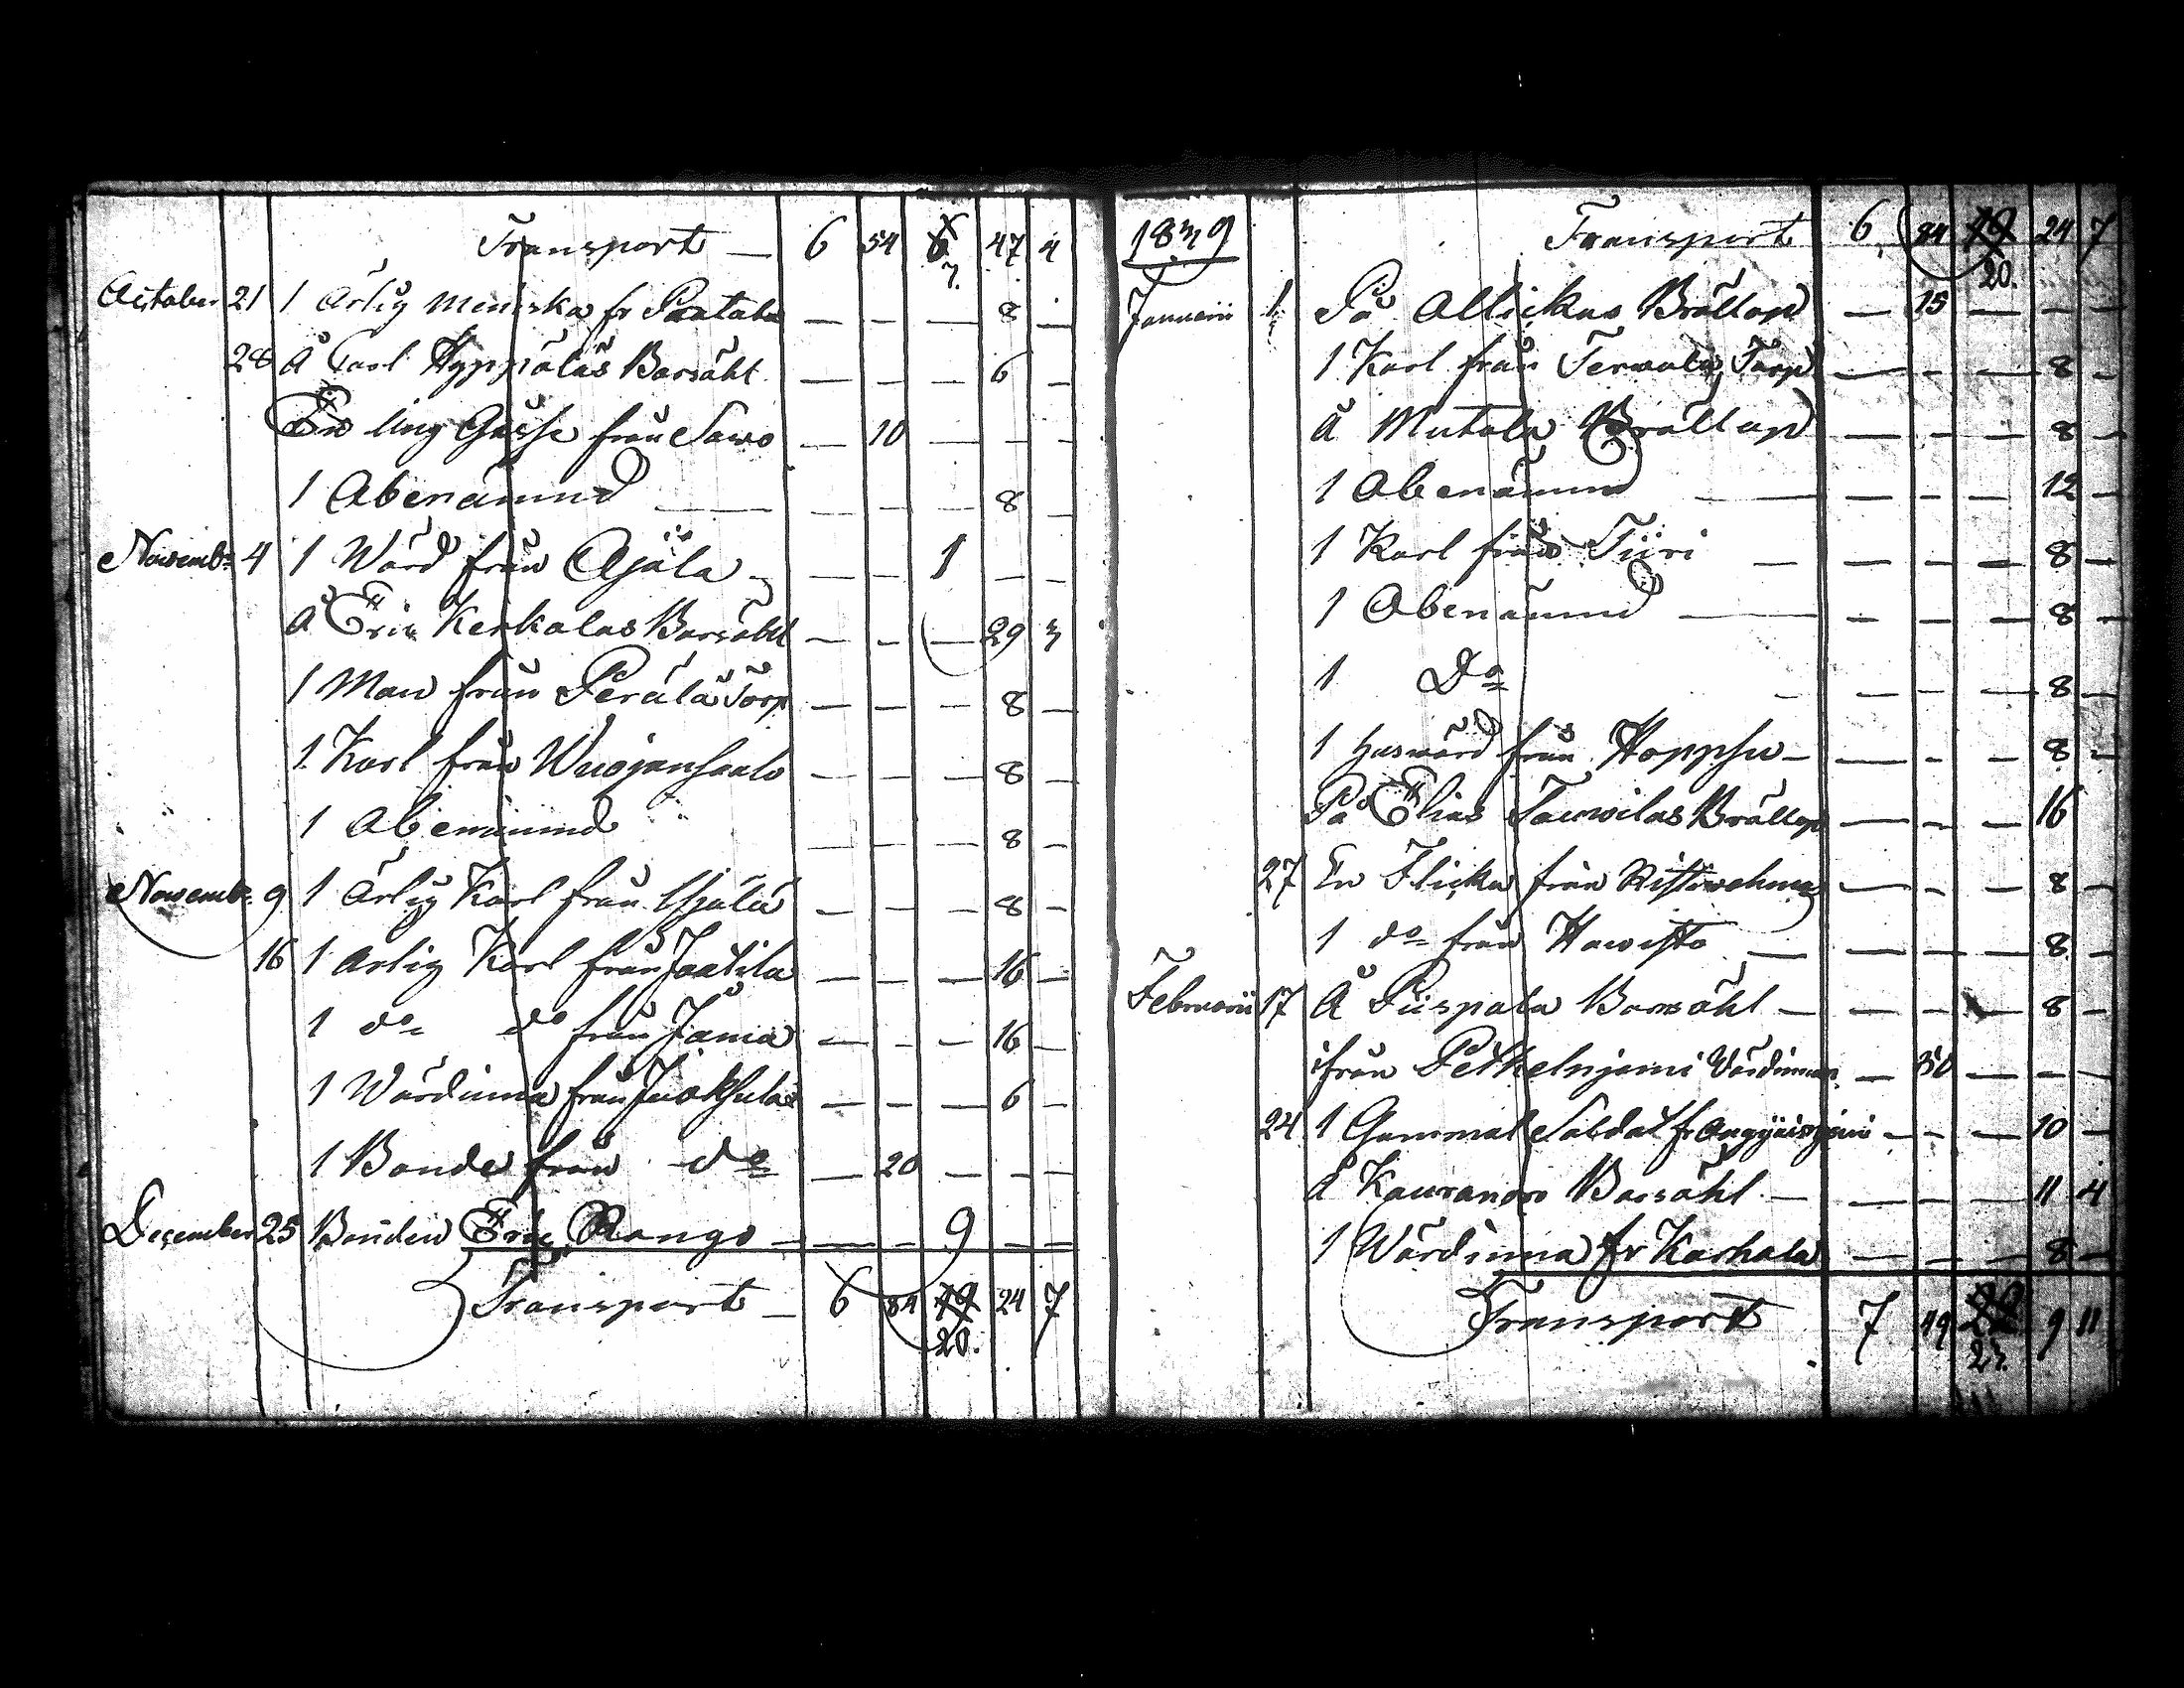 Transport — 6 54 6 47 4
7.
October 21 1 Ärlig Meniska fr Pentala — — — 8 —
28 Å Carl Hyppöläs Barsöhl — — — 6 —
En ung Gåsse från Sawo — 10 — — —
1 Obenämnd — — — 8 —
Novembr 4 1 Wärd från Äjälä — — 1 — —
Å Eric Kerkolas Barsöhl — — — 29 3
1 Man från Perälä Torp — — — 8 —
1 Karl från Wuojensalo — — — 8 —
1 Obenämnd — — — 8 —
Novembr 9 1 Ärlig Karl från — — — 8 —
16 1 Ärlig Karl från Jaatila — — — 16 —
1 do do från Jania — — — 16 —
1 Wärdinna från — — — 6 —
1 Bonde från do — 20 — — —
December 25 Bonden Eric Rongo — — 9 — —
Transport — 6 84 19 24 7
20.
1839 Transport 6 84 19 24 7
20.
Januarii 1 På Ollickas Bröllop — 15 — — —
1 Karl från Terwola Torp — — — 8 —
Å Mutala Bröllop — — — 8 —
1 Obenämnd — — — 12 —
1 Karl från Tiiri — — — 8 —
1 Obenämnd — — — 8 —
1 Do — — — 8 —
1 Huswärd från Hoppsu — — — 8 —
På Elias Bröllop — — — 16
27 En Flicka från Ristiwehma — — — 8 —
1 do från Hawisto — — — 8 —
Februarii 17 Å Piispala Barnsöhl — — — 8 —
ifrån Pethelnjemi Värdinnan — 50 — — —
24 1 Gammal Soldat fr — — — 10 —
Å Kauranoro Barsöhl — — — 11 4
1 Wärdinna fr Karhala — — — 8 —
Transport 7 49 22 9 11
23.